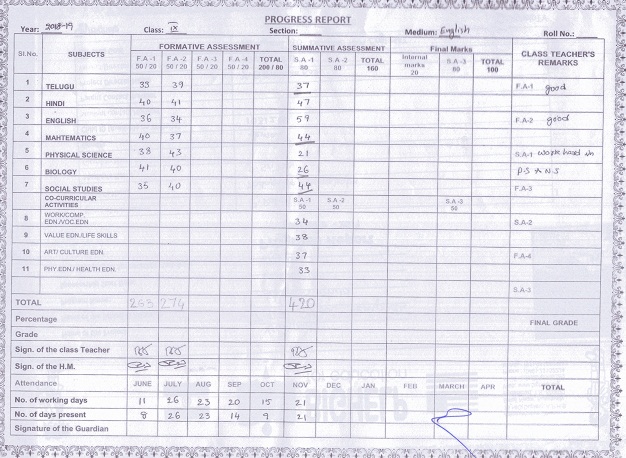 PROGRESS REPORT
Year: 2018-19 Class: IX Section: Medium: English Roll No.:
Sl.No. SUBJECTS FORMATIVE ASSESSMENT SUMMATIVE ASSESSMENT Final Marks CLASS TEACHER'S REMARKS
F.A -1 50 / 20 F.A -2 50 / 20 F.A -3 50 / 20 F.A -4 50 / 20 TOTAL 200 / 80 S.A -1 80 S.A -2 80 TOTAL 160 Internal marks 20 S.A -3 80 TOTAL 100
1 TELUGU 33 39 37 F.A-1 good
2 HINDI 40 41 47
3 ENGLISH 36 34 59 F.A-2 good
4 MAHTEMATICS 40 37 44
5 PHYSICAL SCIENCE 38 43 21 S.A-1 work hard in
6 BIOLOGY 41 40 26 P.S & N.S
7 SOCIAL STUDIES 35 40 44 F.A-3
CO-CURRICULAR ACTIVITIES S.A -1 50 S.A -2 50 S.A -3 50
8 WORK/COMP. EDN./VOC.EDN 34 S.A-2
9 VALUE EDN./LIFE SKILLS 38
10 ART/ CULTURE EDN. 37 F.A-4
11 PHY.EDN / HEALTH EDN. 33
S.A-3
TOTAL 263 274 420
Percentage FINAL GRADE
Grade
Sign. of the class Teacher
Sign. of the H.M.
Attendance JUNE JULY AUG SEP OCT NOV DEC JAN FEB MARCH APR TOTAL
No. of working days 11 26 23 20 15 21
No. of days present 8 26 23 14 9 21
Signature of the Guardian